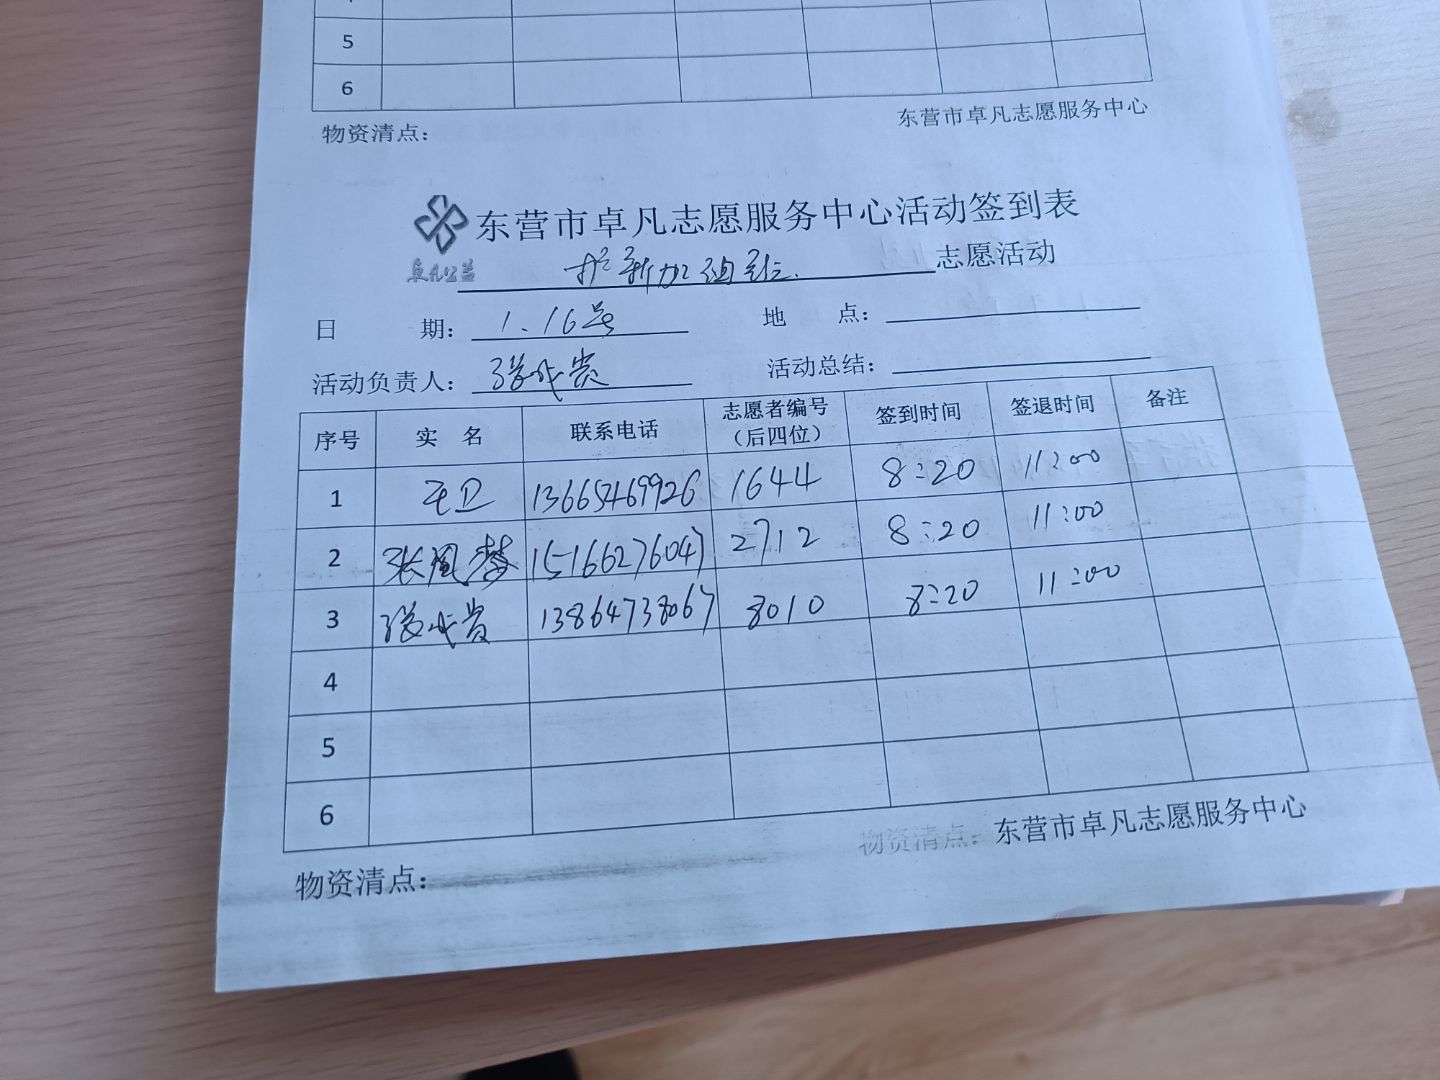 5
6
物资清点：
东营市卓凡志愿服务中心
东营市卓凡志愿服务中心活动签到表
卓凡公益
护新加油站 志愿活动
日 期： 1.16号 地 点：
活动负责人： 张成贵 活动总结：
序号 实 名 联系电话 志愿者编号（后四位） 签到时间 签退时间 备注
1 王卫 13665469926 1644 8:20 11:00
2 张凤梦 15166276047 2712 8:20 11:00
3 张成贵 13864738067 8010 8:20 11:00
4
5
6
物资清点：
物资清点：
东营市卓凡志愿服务中心